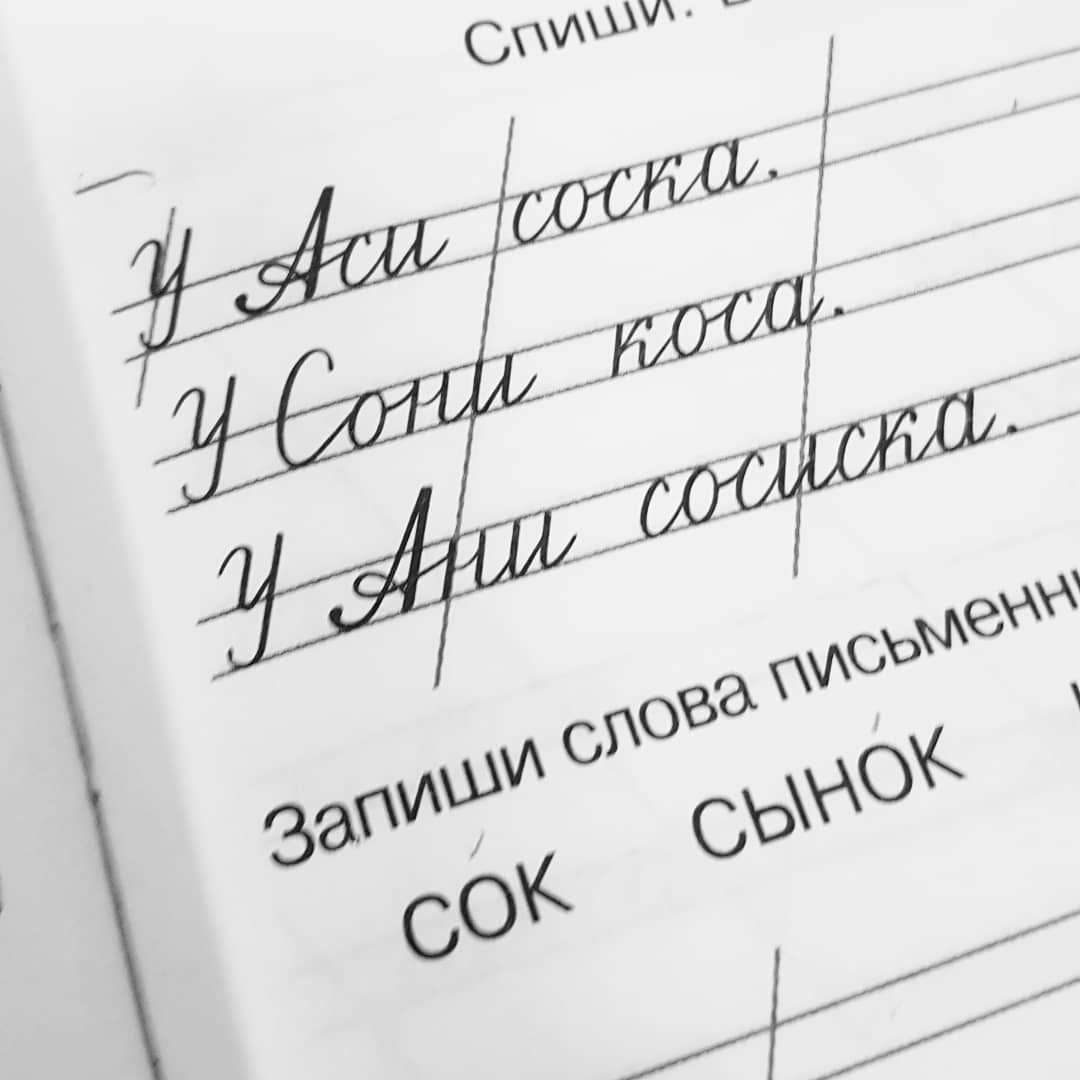 Спиши.
У Аси соска.
У Сони коса.
У Ани сосиска.
Запиши слова
со́к сыно́к